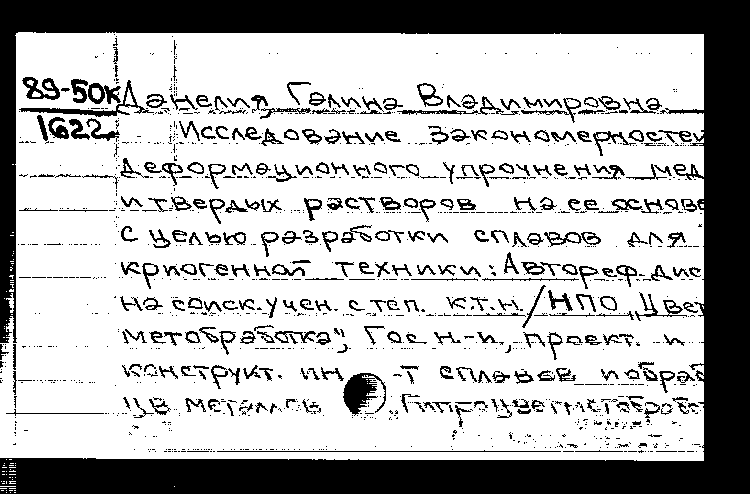 89-50К Данелия, Галина Владимировна.
1622 Исследование закономерностей
деформационного упрочнения мед
и твердых растворов на ее основе
с целью разработки сплавов для
криогенной техники: Автореф. дис
на соиск. учен. степ. к.т.н. / НПО „Цвет
метобработка", Гос н.-и., проект. и
конструкт. ин-т сплавов и обраб
цв металлов „Гипроцветметобработ